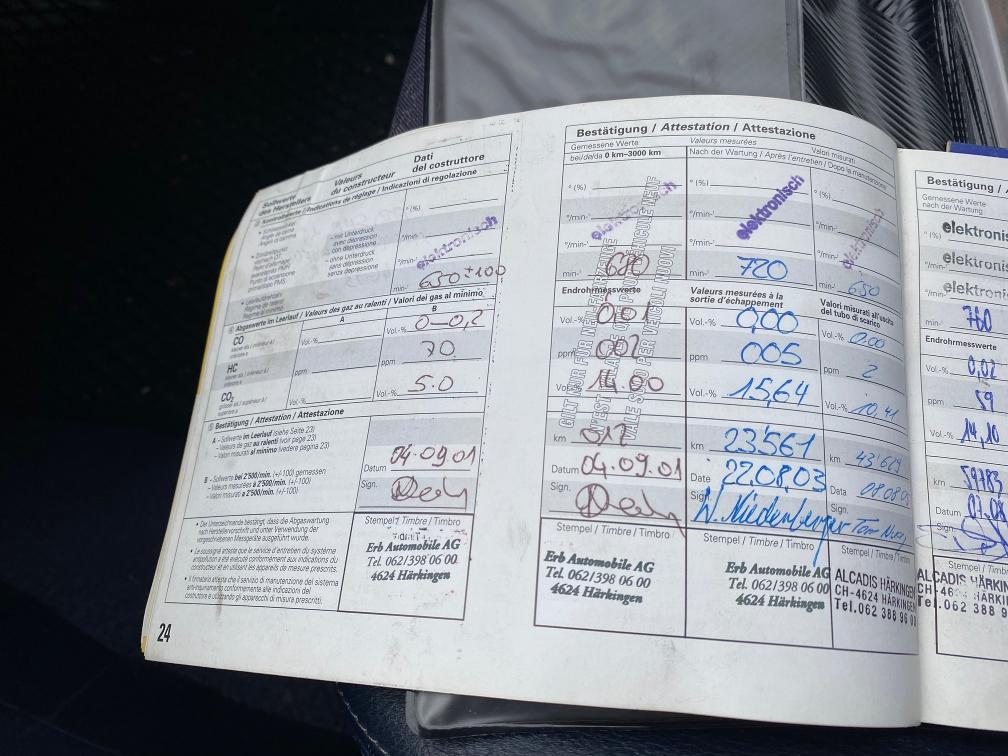 Sollwerte
des Herstellers
Valeurs
du constructeur
Dati
del costruttore
Indications de réglage / Indicazioni di regolazione
– mit Unterdruck
avec dépression
con depressione
– ohne Unterdruck
sans dépression
senza depressione
° (%)
°/min-¹
elektronisch
°/min-¹
min-¹ 650±100
Abgaswerte im Leerlauf / Valeurs des gaz au ralenti / Valori dei gas al minimo
A
B
CO
Vol.-%
Vol.-% 0–0,2
HC
ppm
ppm 70
CO₂
Vol.-%
Vol.-% 5.0
Bestätigung / Attestation / Attestazione
A – Sollwerte im Leerlauf (siehe Seite 23)
– Valeurs de gaz au ralenti (voir page 23)
– Valori misurati al minimo (vedere pagina 23)
B – Sollwerte bei 2'500/min. (+/-100) gemessen
– Valeurs mesurées à 2'500/min. (+/-100)
– Valori misurati a 2'500/min. (+/-100)
Datum 04.09.01
Sign.
• Der Unterzeichnende bestätigt, dass die Abgaswartung
nach Herstellervorschrift und unter Verwendung der
vorgeschriebenen Messgeräte ausgeführt wurde.
• Le soussigné atteste que le service d'entretien du système
antipollution a été exécuté conformément aux indications du
constructeur et en utilisant les appareils de mesure prescrits.
• Il firmatario attesta che il servizio di manutenzione del sistema
anti-inquinamento conformemente alle indicazioni del
costruttore e utilizzando gli apparecchi di misura prescritti.
Stempel / Timbre / Timbro
Erb Automobile AG
Tel. 062/398 06 00
4624 Härkingen
24
Bestätigung / Attestation / Attestazione
Gemessene Werte
Valeurs mesurées
Valori misurati
bei/de/da 0 km–3000 km
Nach der Wartung / Après l'entretien / Dopo la manutenzione
° (%)
° (%)
° (%)
elektronisch
elektronisch
elektronisch
°/min-¹
°/min-¹
°/min-¹
°/min-¹
°/min-¹
°/min-¹
min-¹ 680
min-¹ 720
min-¹ 650
GILT NUR FÜR NEUFAHRZEUGE
N'EST VALABLE QUE POUR VEHICULE NEUF
VALE SOLO PER VEICOLI NUOVI
Endrohrmesswerte
Valeurs mesurées à la
sortie d'échappement
Valori misurati all'uscita
del tubo di scarico
Vol.-% 0.01
Vol.-% 0,00
Vol.-% 0.00
ppm 002
ppm 005
ppm 2
Vol.-% 14.00
Vol.-% 15,64
Vol.-% 10.41
km 017
km 23'561
km
Datum 04.09.01
Date 22.08.03
Data
Sign.
Sign. W. Niederberger
Sign.
Stempel / Timbre / Timbro
Stempel / Timbre / Timbro
Stempel / Timbre / Timbro
Erb Automobile AG
Tel. 062/398 06 00
4624 Härkingen
Erb Automobile AG
Tel. 062/398 06 00
4624 Härkingen
ALCADIS HÄRKINGEN
CH-4624 HÄRKINGEN
Tel.062 388 96 00
Bestätigung /
Gemessene Werte
nach der Wartung
° (%) elektronis
°/min-¹ elektronis
°/min-¹ elektronis
min-¹ 760
Endrohrmesswerte
Vol.-% 0,02
ppm 59
Vol.-% 14,10
km
Datum
Sign.
Stempel / Timbre
ALCADIS HÄRKIN
CH-46 HÄRKIN
Tel.062 388 9